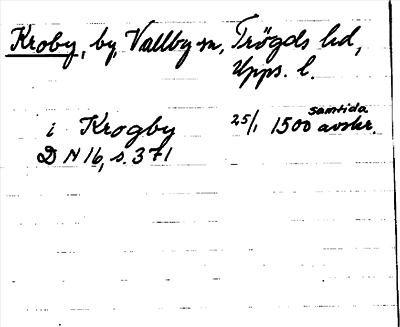 Kroby, by, Vallby sn, Trögds hd,
Upps. l.
i Krogby 25/1 1500 samtida avskr.
D N 16, s. 371